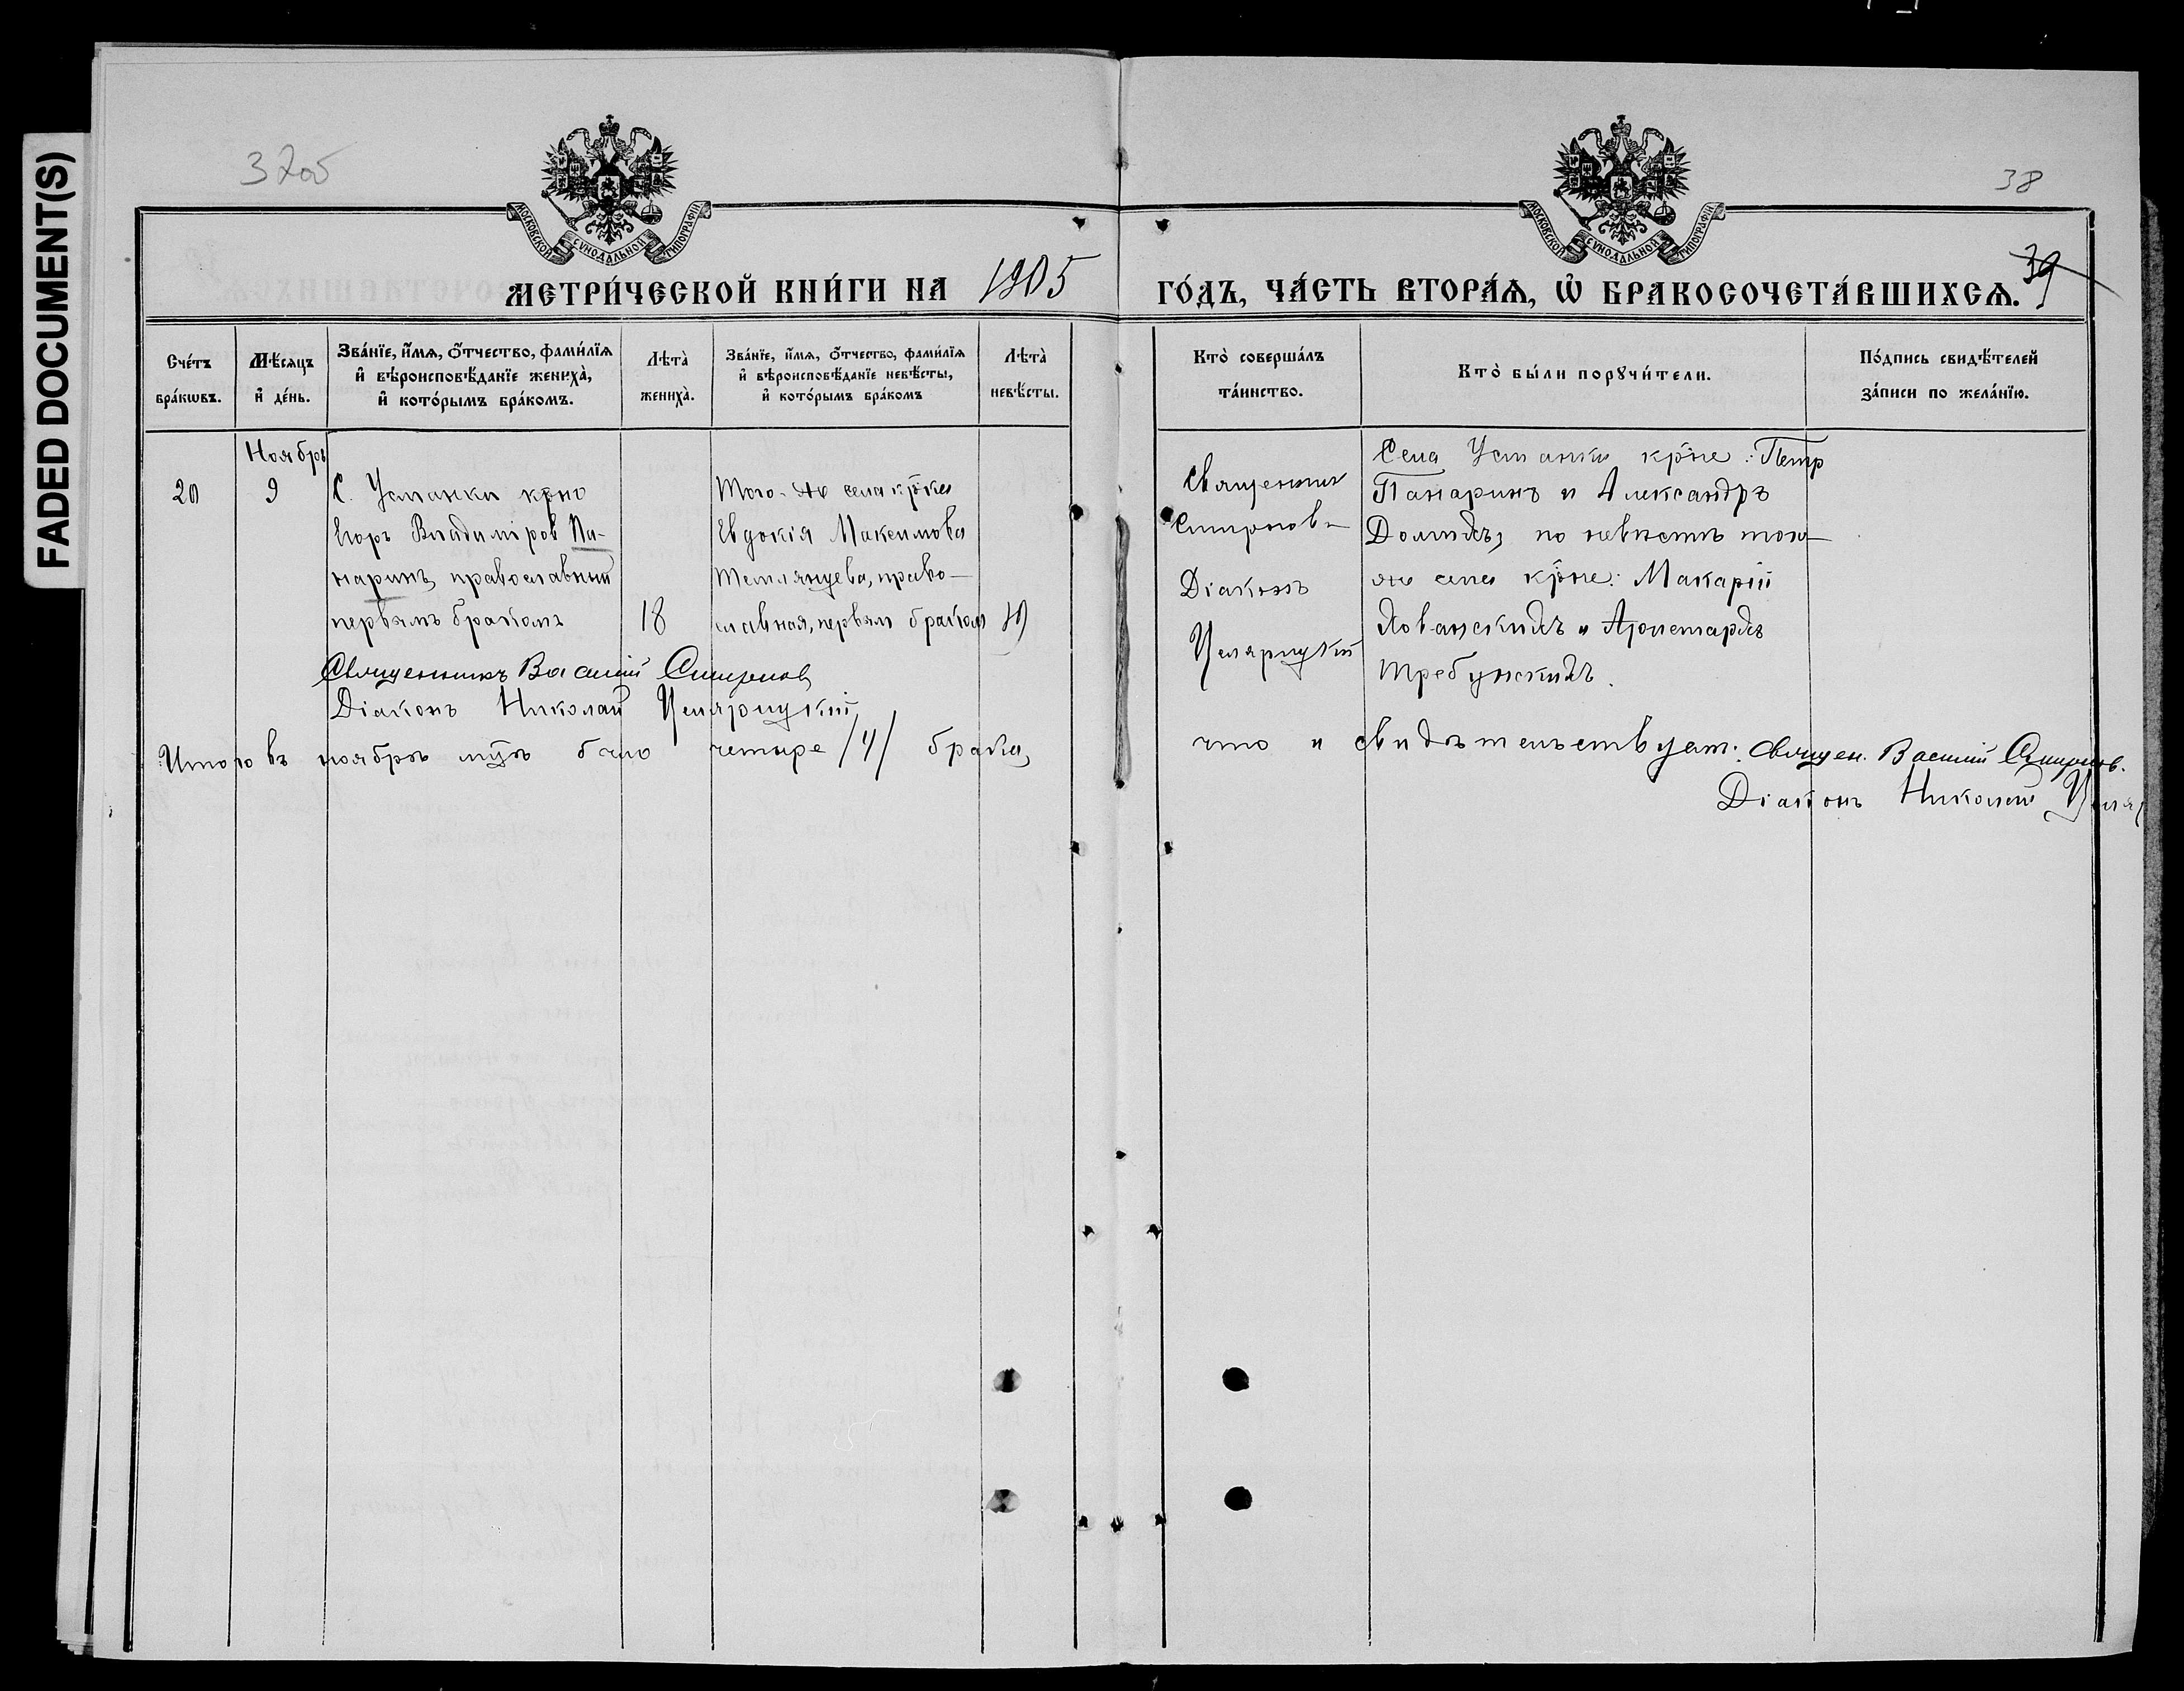 FADED DOCUMENT(S)
3705
38
МОСКОВСКОЙ СѴНОДАЛЬНОЙ ТИПОГРАФІИ
МОСКОВСКОЙ СѴНОДАЛЬНОЙ ТИПОГРАФІИ
39
МЕТРИ́ЧЕСКОЙ КНИ́ГИ НА 1905 ГО́ДЪ, ЧА́СТЬ ВТОРА́Ѧ, Ѡ҆ БРАКОСОЧЕТА́ВШИХСѦ.
Сче́тъ бра́кѡвъ.
Мѣ́сяцъ и҆ де́нь.
Зва́нїе, и҆́мѧ, ѻ҆́тчество, фами́лїѧ
и҆ вѣроисповѣ́данїе жениха̀,
и҆ кото́рымъ бра́комъ.
Лѣта̀ жениха̀.
Зва́нїе, и҆́мѧ, ѻ҆́тчество, фами́лїѧ
и҆ вѣроисповѣ́данїе невѣ́сты,
и҆ кото́рымъ бра́комъ
Лѣта̀ невѣ́сты.
Кто̀ соверша́лъ
та́инство.
Кто̀ бы́ли порꙋчи́тели.
По́дпись свидѣ́телей
за́писи по жела́нїю.
Ноябрь
20
9
С. Устанки крно
Егоръ Владиміров Па-
наринъ, православный
первымъ бракомъ
18
Того-же села кр-ка
Евдокія Максимова
православная, первым браком
19
Священник
Смирнов
Діаконъ
Целярицкій
Села Устанки кр-не: Петр
Панаринъ и Александръ
Долгихъ, по невѣстѣ того
же села кр-не: Макарій
Хованскихъ и Аристархъ
Требунскихъ.
Священникъ Василій Смирнов
Діаконъ Николай Целярицкій
Итого въ ноябрѣ м-цѣ было четыре /4/ брака,
что и свидѣтельствуют: Священ. Василій Смирнов.
Діаконъ Николай Целяр